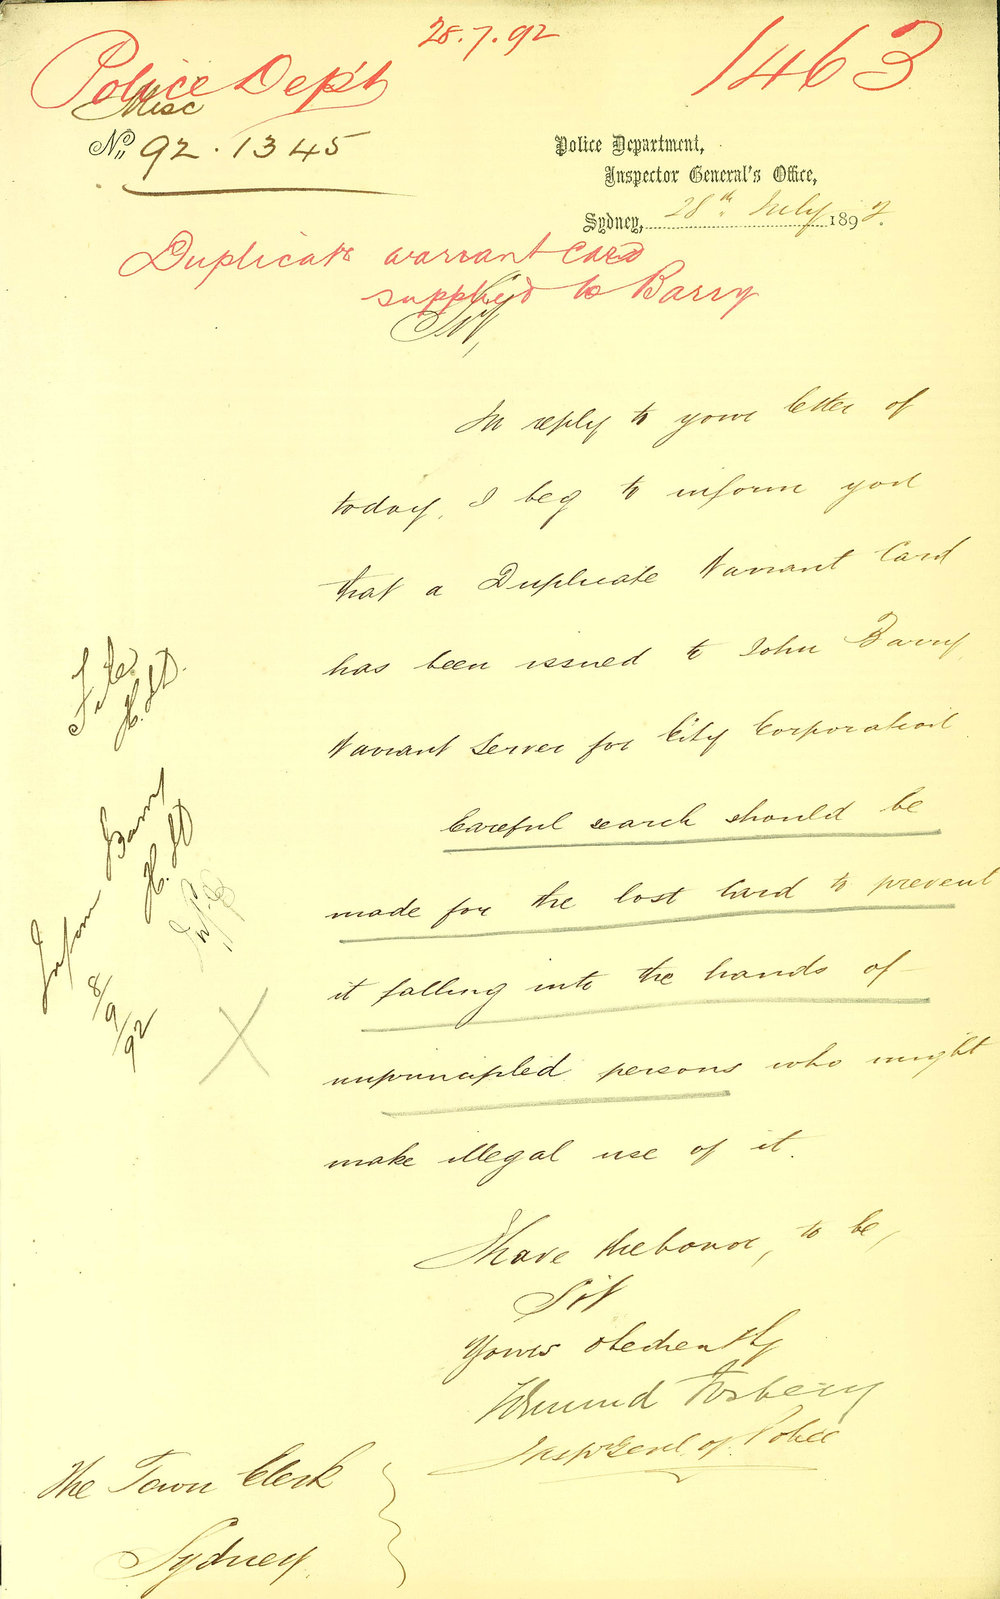 28.7.92
1463
Police Dep't
Misc
No. 92.1345
Police Department,
Inspector General's Office,
Sydney, 28th July 1892.
Duplicate warrant card
supplied to Barry
Sir,
In reply to your letter of
today, I beg to inform you
that a Duplicate Warrant Card
has been issued to John Barry,
Warrant Server for City Corporation
Careful search should be
made for the lost Card to prevent
it falling into the hands of
unprincipled persons who might
make illegal use of it.
I have the honor, to be,
Sir
Yours obediently
Edmund Fosbery
Insp Genl of Police
The Town Clerk
Sydney.
File
H.S.D.
Inform Barry
H.S.D
8/9/92